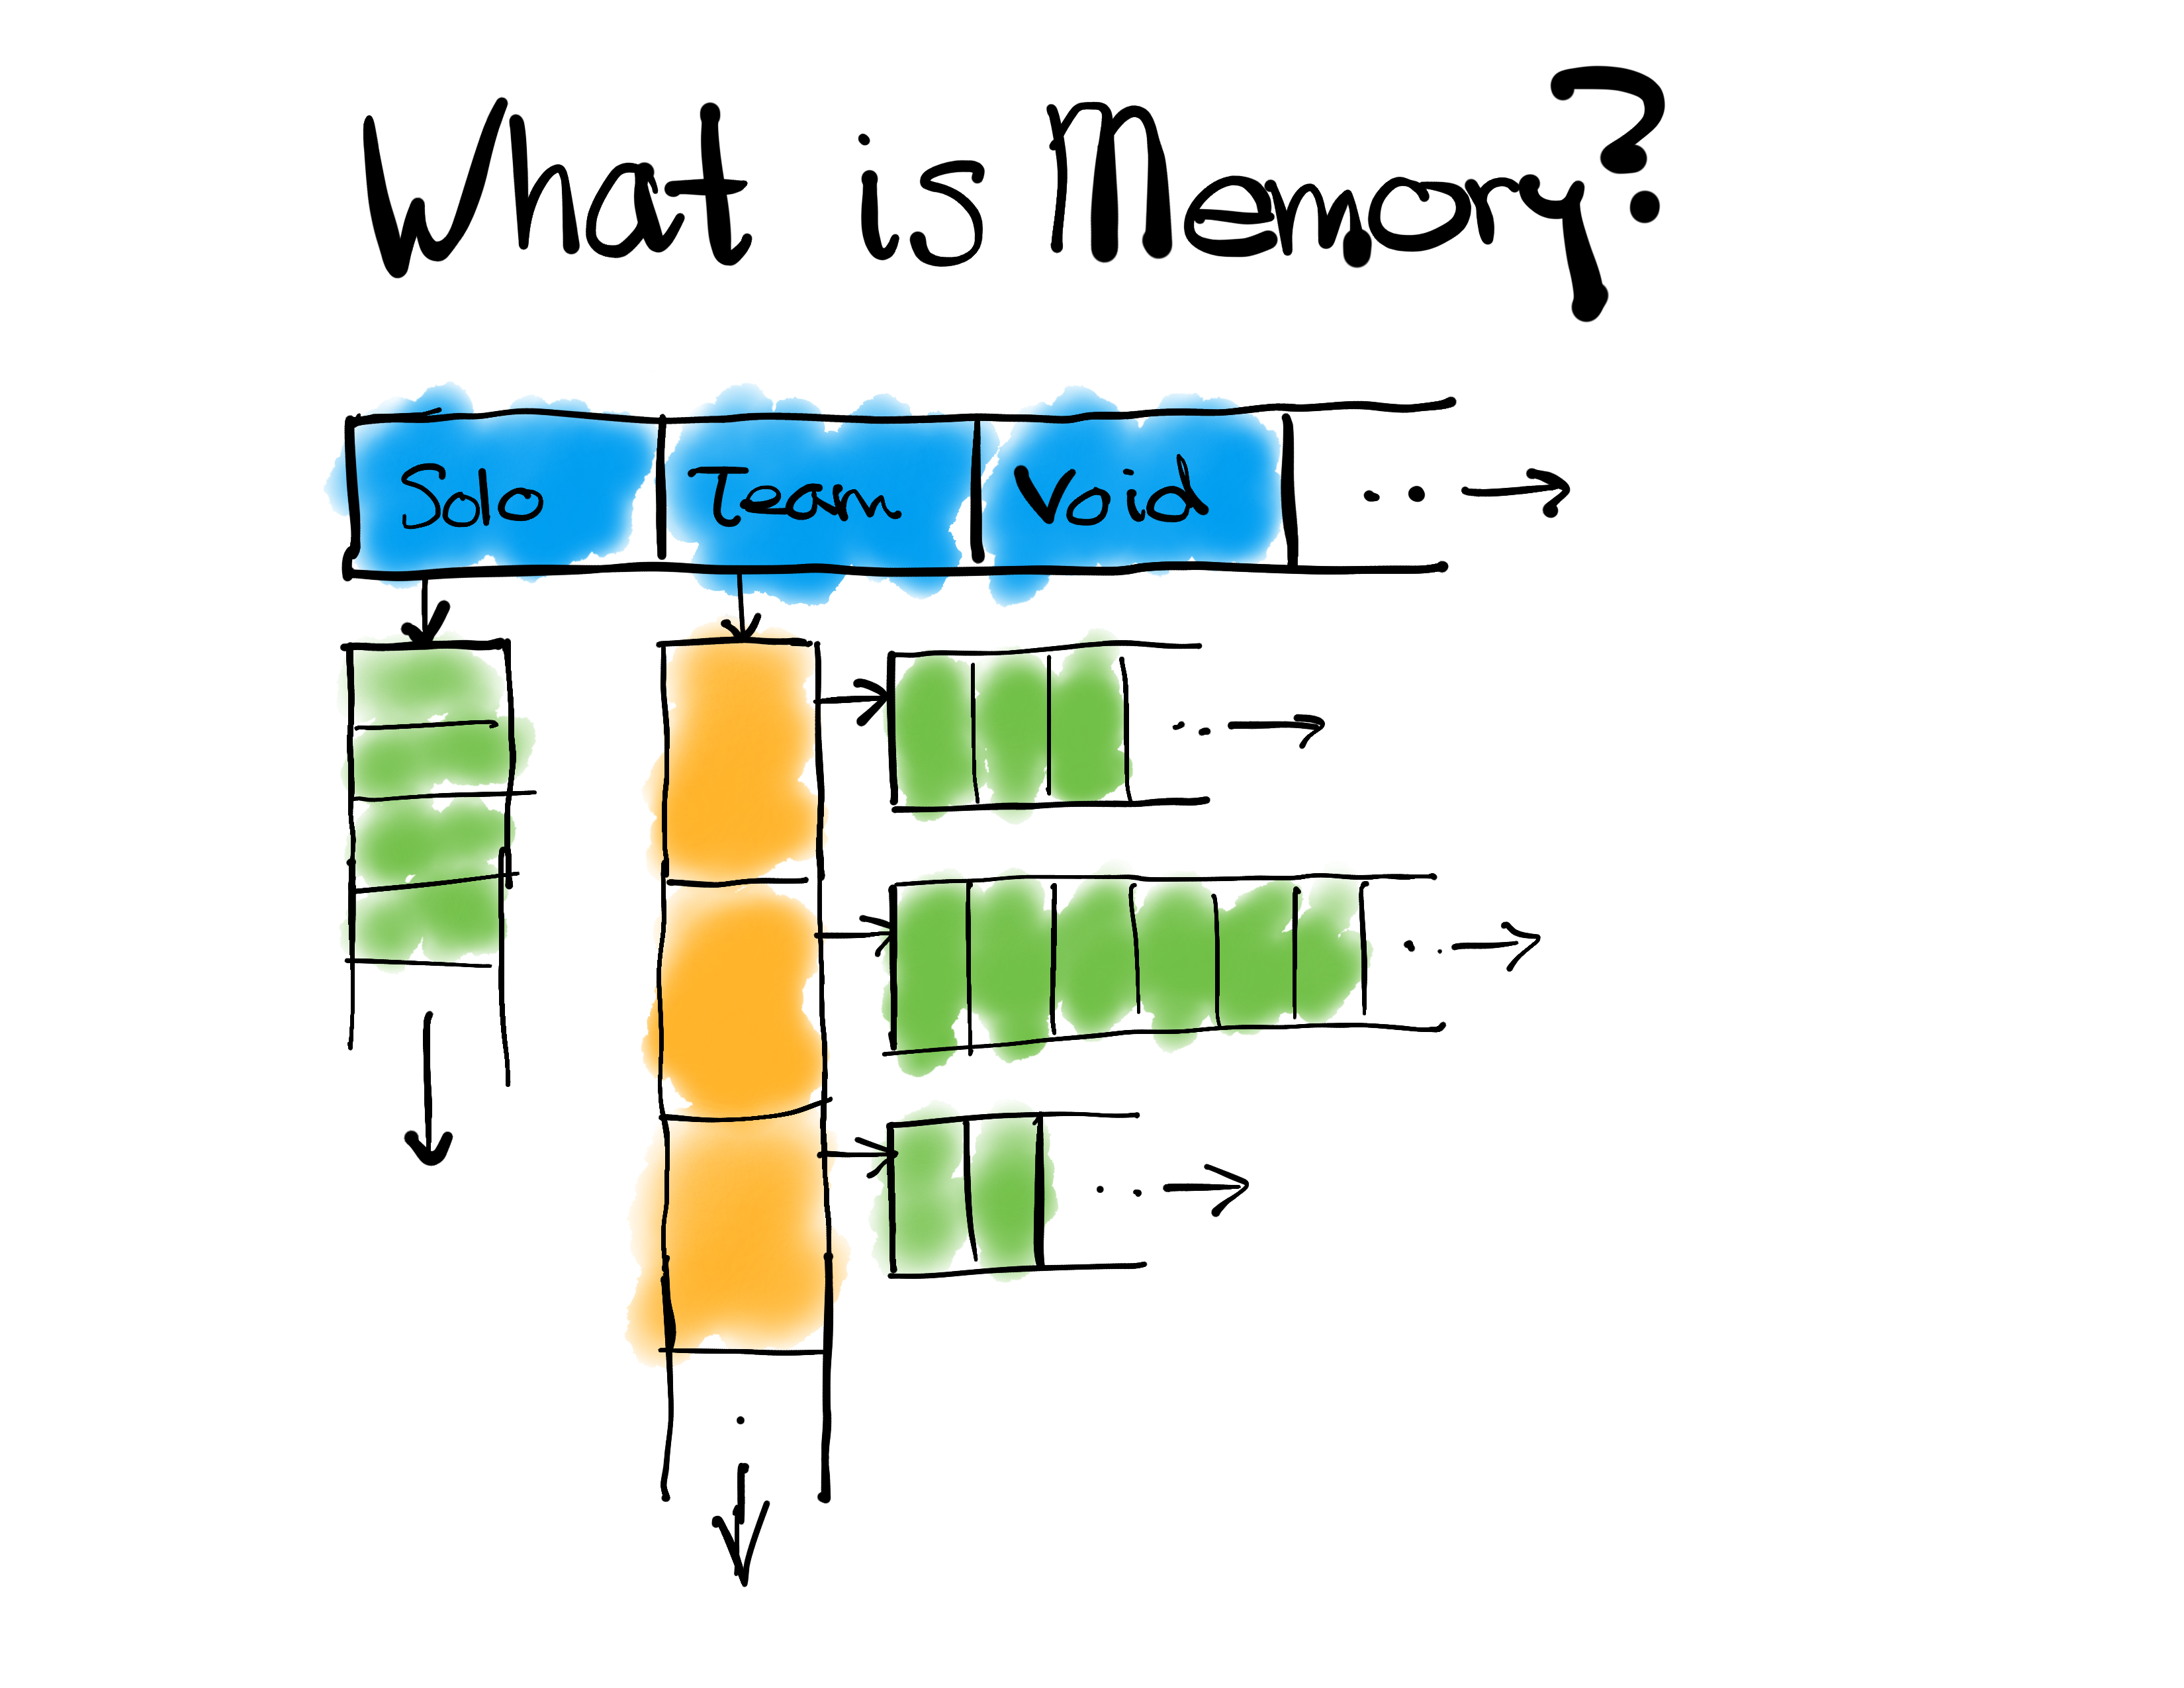 What is Memory?
Solo Team Void